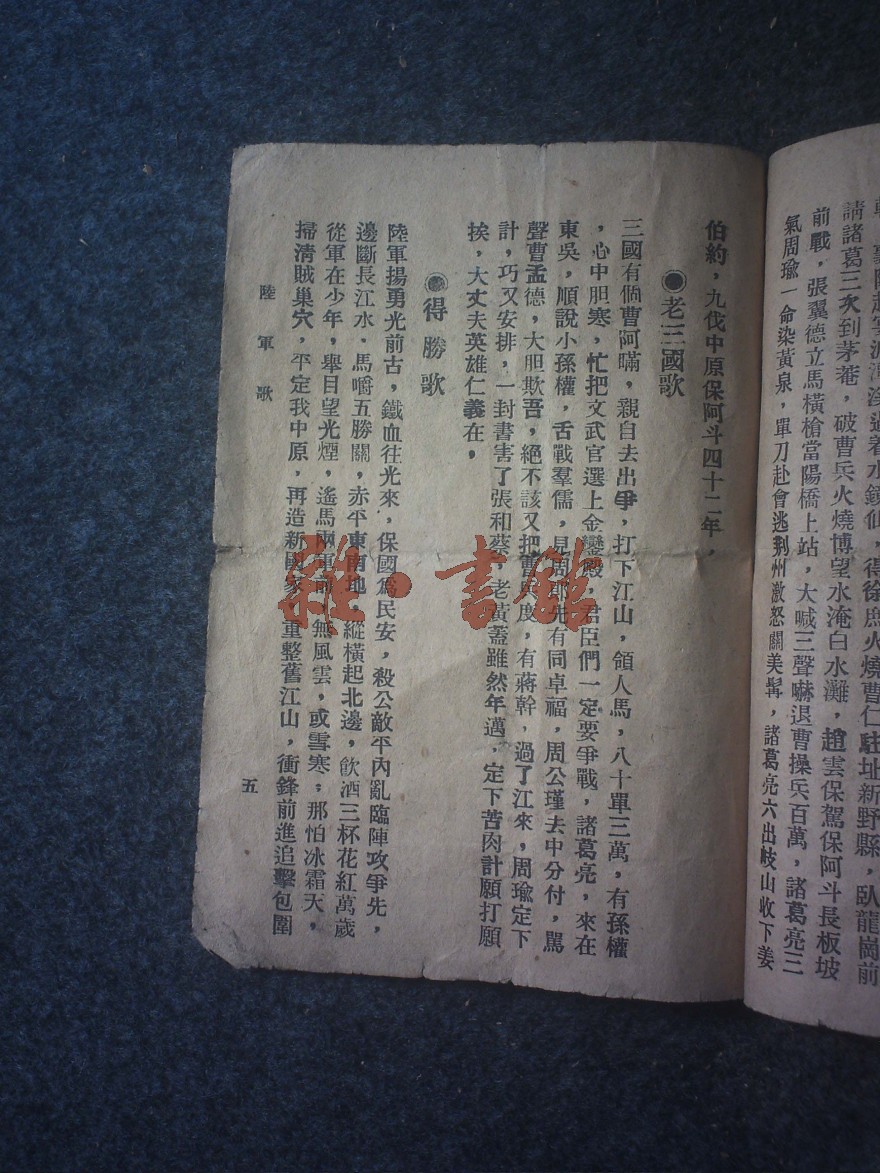 請諸葛三次到茅菴，破曹兵火燒博望水淹白水灘，趙雲保駕保阿斗長板坡
前戰，張翼德立馬橫槍當陽橋上站，大喊三聲嚇退曹操兵百萬，諸葛亮三
氣周瑜一命染黃泉，單刀赴會逃荆州激怒關美髯，諸葛亮六出岐山收下姜
伯約，九伐中原保阿斗四十二年，
●老三國歌
三國有倘曹阿瞞，親自去出爭，打下江山，領人馬，八十單三萬，有孫權
，心中胆寒，忙把文武官選上金鑾殿，君臣們一定要爭戰，諸葛亮，來在
東吳，順說小孫權，舌戰羣儒，見周郎先有同卓福，周公瑾去中分付，罵
聲曹孟德，大胆欺吾，絕不該又把
度，有蔣幹，過了江來，周瑜定下
計，巧又安排，一封書害了張和蔡，老黃蓋雖然年邁，定下苦肉計願打願
挨，大丈夫英雄仁義在，
●得勝歌
陸軍揚勇光前古，鐵血往光來，保國爲民安，殺公敵平內亂臨陣攻爭先，
邊斷長江水，馬嚼五勝關，赤平東南地，縱橫起北邊，飲酒三杯花紅萬歲
從軍在少年，舉目望光煙，遙馬兩軍
無風雲，或雪寒；那怕冰霜天，
掃清賊巢穴，平定我中原，再造新國家，重整舊江山，衝鋒前進追擊包圍
陸軍歌
五
雜·書館